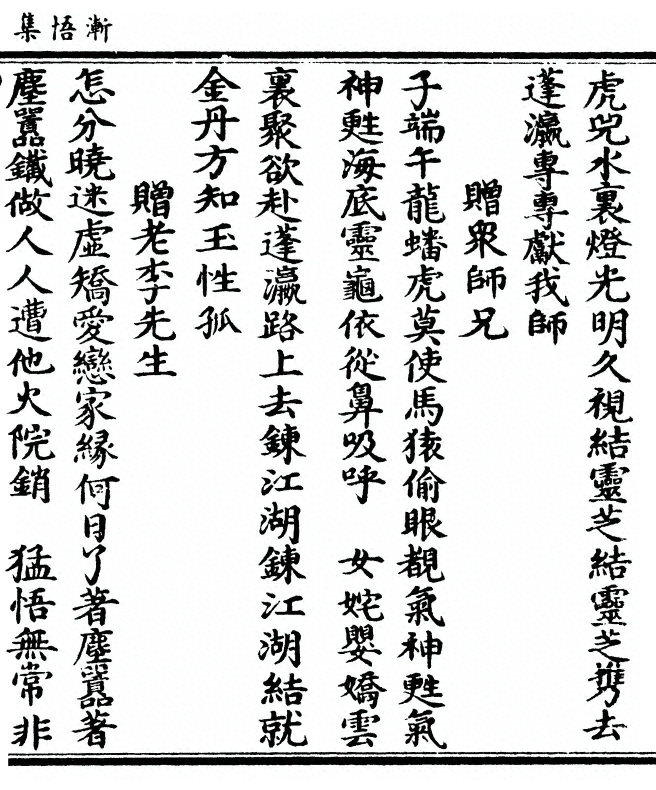 漸悟集
虎兕水裏燈光明久視結靈芝結靈芝攜去
蓬瀛專專獻我師
贈衆師兄
子端午龍蟠虎莫使馬猿偷眼覩氣神甦氣
神甦海底靈龜依從鼻吸呼　女姹嬰嬌雲
裏聚欲赴蓬瀛路上去鍊江湖鍊江湖結就
金丹方知玉性孤
贈老李先生
怎分曉迷虛矯愛戀家緣何日了著塵囂著
塵囂鐵做人人遭他火院銷　猛悟無常非